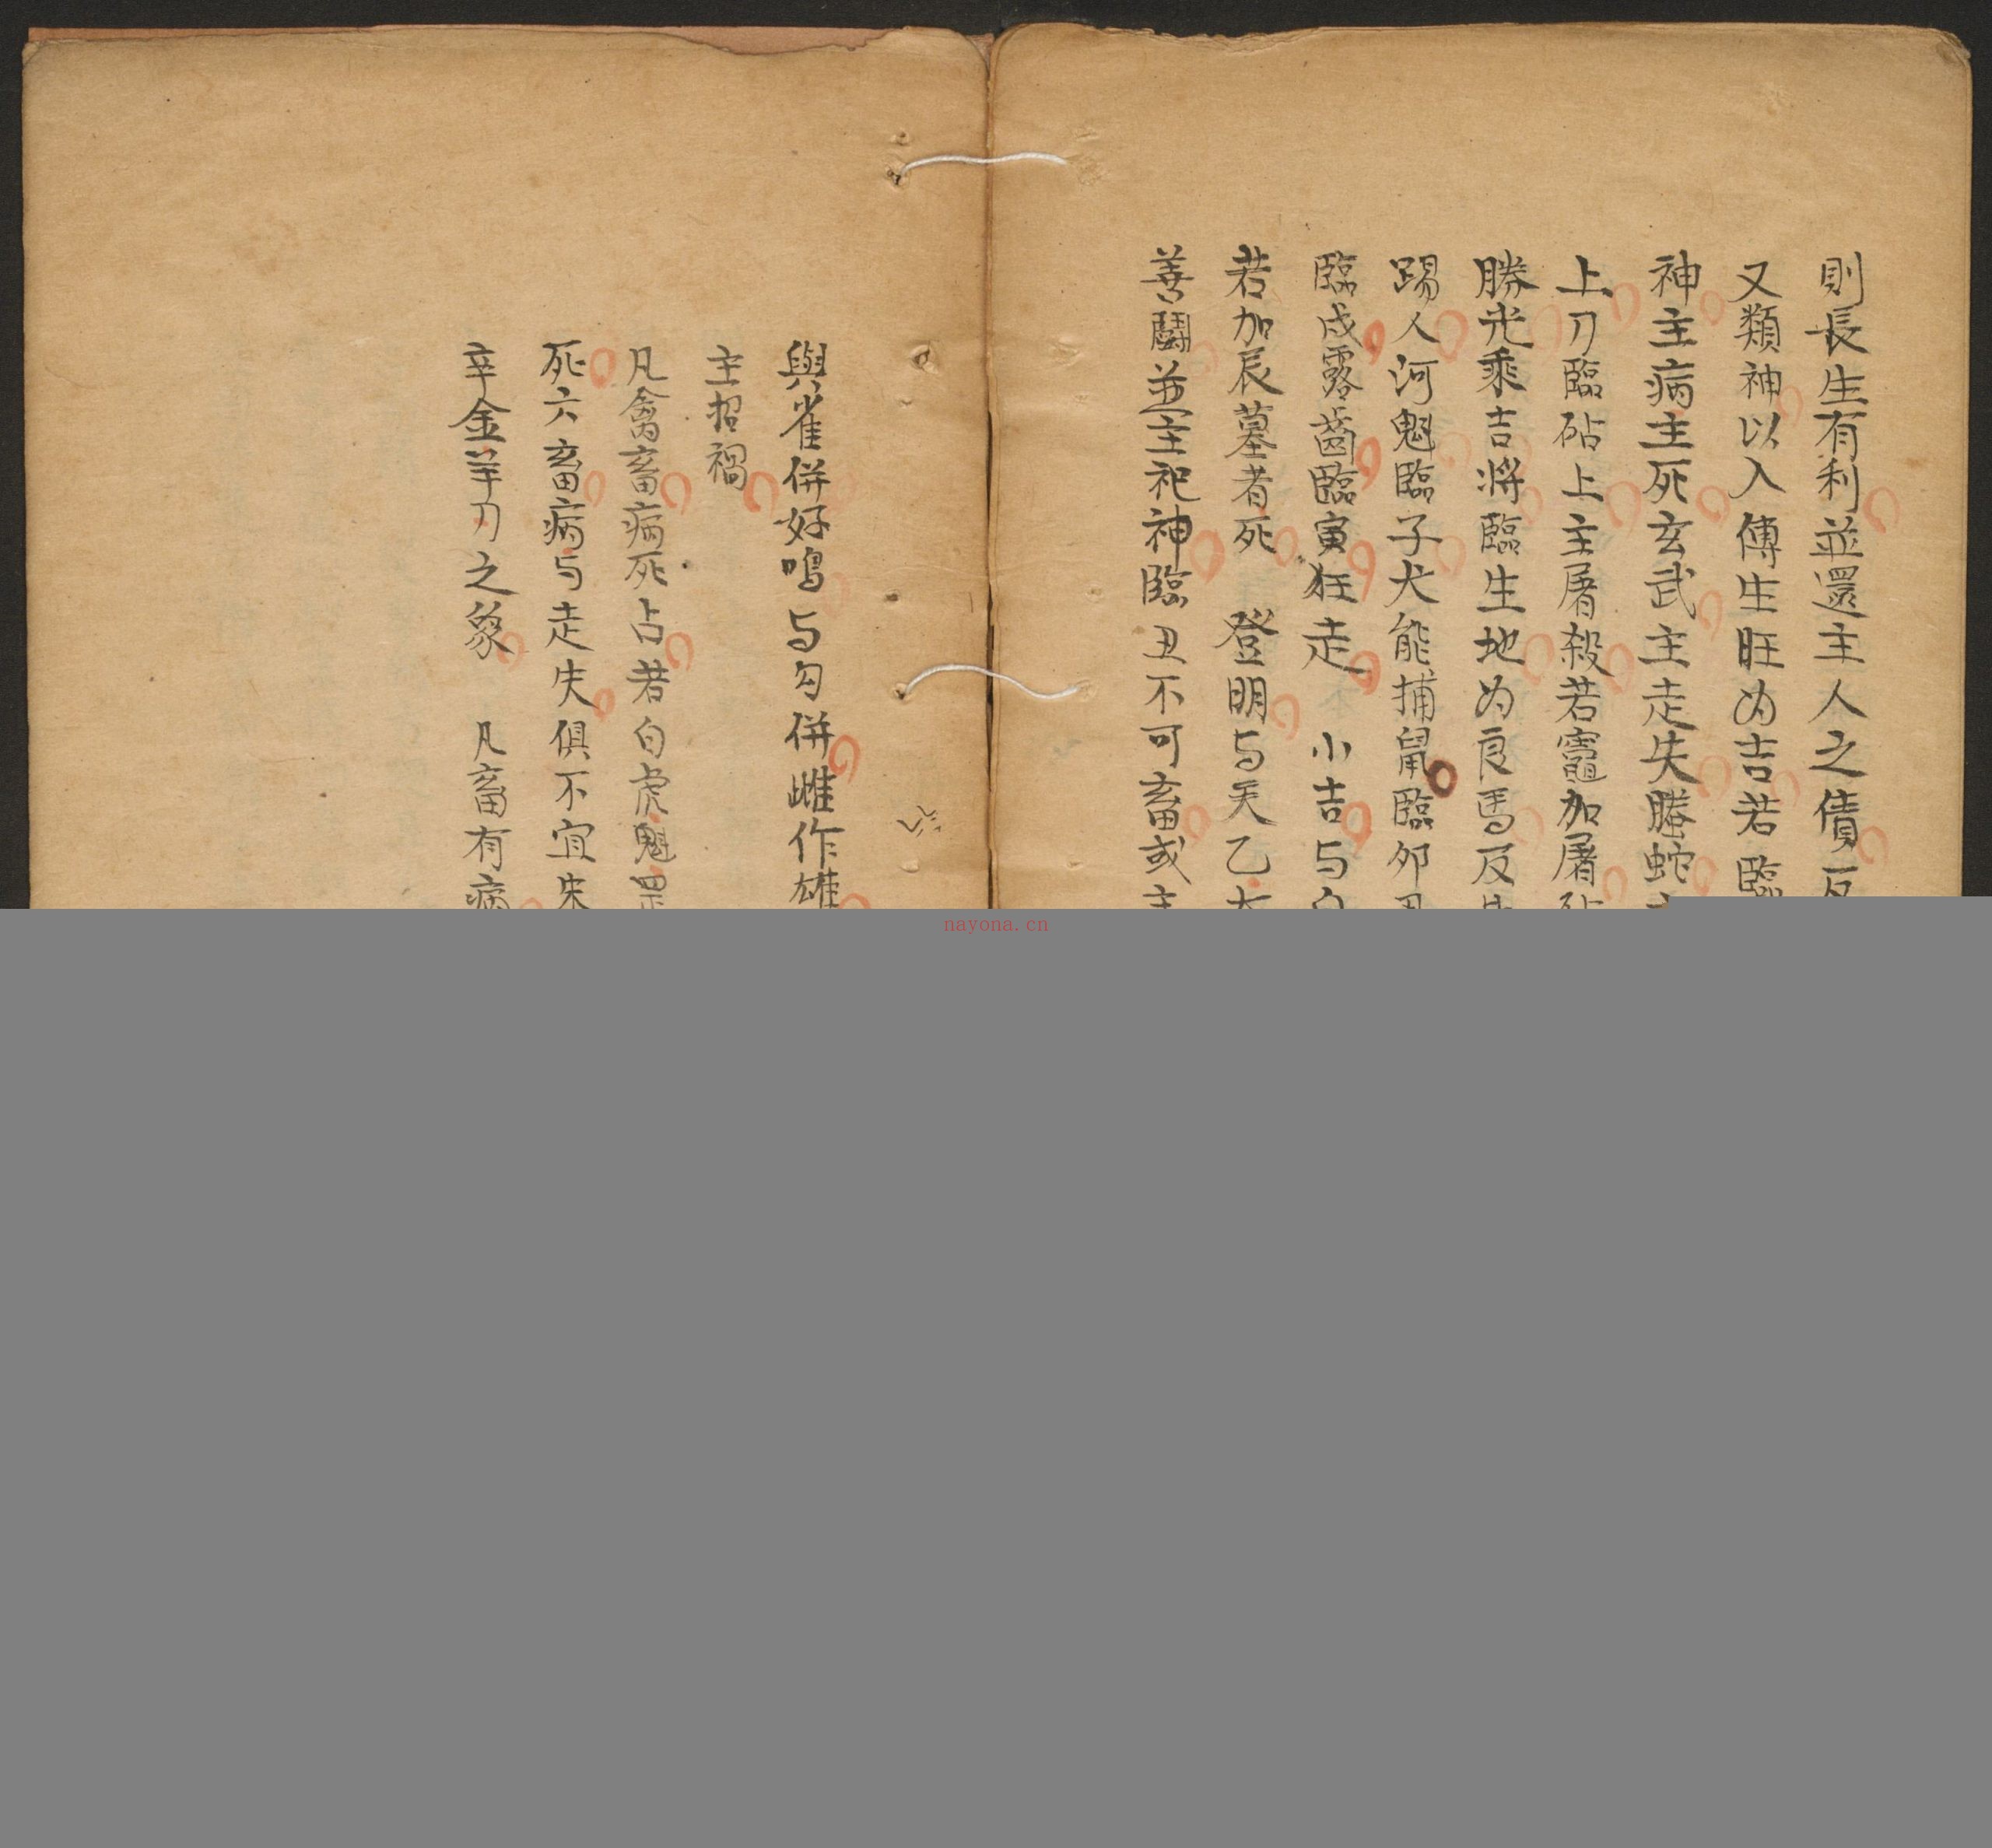 則長生有利並還主人之債
又類神以入傳生旺为吉若臨
神主病主死玄武主走失螣蛇
上刀臨砧上主屠殺若竈加屠砧
勝光乘吉將臨生地为良馬及
踢人河魁臨子犬能捕鼠臨卯
臨戌露齒臨寅狂走 小吉与白
若加辰墓者死 登明与天乙
善鬪並主祀神臨丑不可畜或主
與雀併好鳴与勾併雌作雄
主招禍
凡禽畜病死占若白虎魁罡
死六畜病与走失俱不宜朱
辛金羊刀之象 凡畜有病
nayona.cn